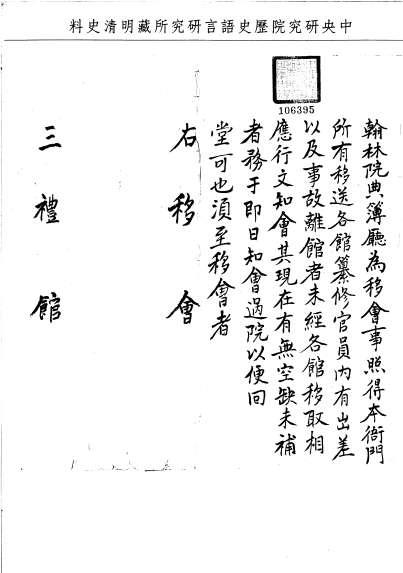 中央研究院歷史語言研究所藏明清史料
106395
翰林院典簿廳為移會事照得本衙門
所有移送各館纂修官員內有出差
以及事故離館者未經各館移取相
應行文知會其現在有無空缺未補
者務于即日知會過院以便回
堂可也須至移會者
右移會
三禮館